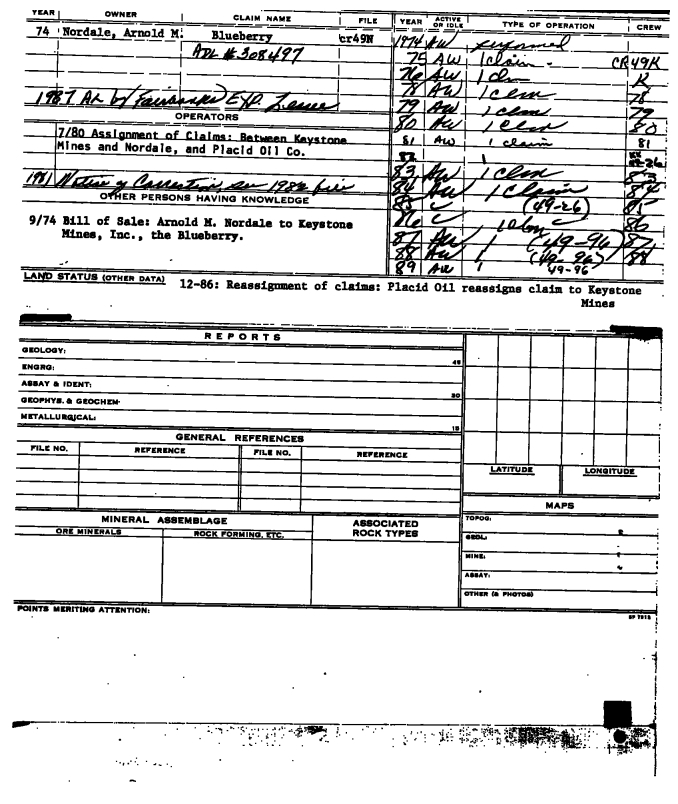 YEAR OWNER CLAIM NAME FILE
74 Nordale, Arnold M. Blueberry cr49N
ADL #308497
1987 AL by Fairbanks EXP. Lessee
OPERATORS
7/80 Assignment of Claims: Between Keystone
Mines and Nordale, and Placid Oil Co.
1981 Notice of Correction see 1982 file
OTHER PERSONS HAVING KNOWLEDGE
9/74 Bill of Sale: Arnold M. Nordale to Keystone
Mines, Inc., the Blueberry.
YEAR ACTIVE OR IDLE TYPE OF OPERATION CREW
1974 AW performed
75 AW 1 claim - CR49K
76 AW 1 clm K
78 AW 1 clm 78
79 AW 1 clm 79
80 AW 1 clm 80
81 AW 1 claim 81
82 1
83 AW 1 clm 83
84 AW 1 claim 84
85 C (49-26) 85
86 C 1 clm 86
87 AW 1 (49-96) 87
88 AW 1 (49-96) 88
89 AW 1 49-96
LAND STATUS (OTHER DATA) 12-86: Reassignment of claims: Placid Oil reassigns claim to Keystone
Mines
REPORTS
GEOLOGY:
45
ENGRG:
ASSAY & IDENT:
30
GEOPHYS. & GEOCHEM.
METALLURGICAL:
15
GENERAL REFERENCES
FILE NO. REFERENCE FILE NO. REFERENCE
LATITUDE LONGITUDE
MINERAL ASSEMBLAGE
ORE MINERALS ROCK FORMING, ETC.
ASSOCIATED
ROCK TYPES
MAPS
TOPOG:
GEOL:
MINE:
ASSAY:
OTHER (& PHOTOS)
POINTS MERITING ATTENTION: